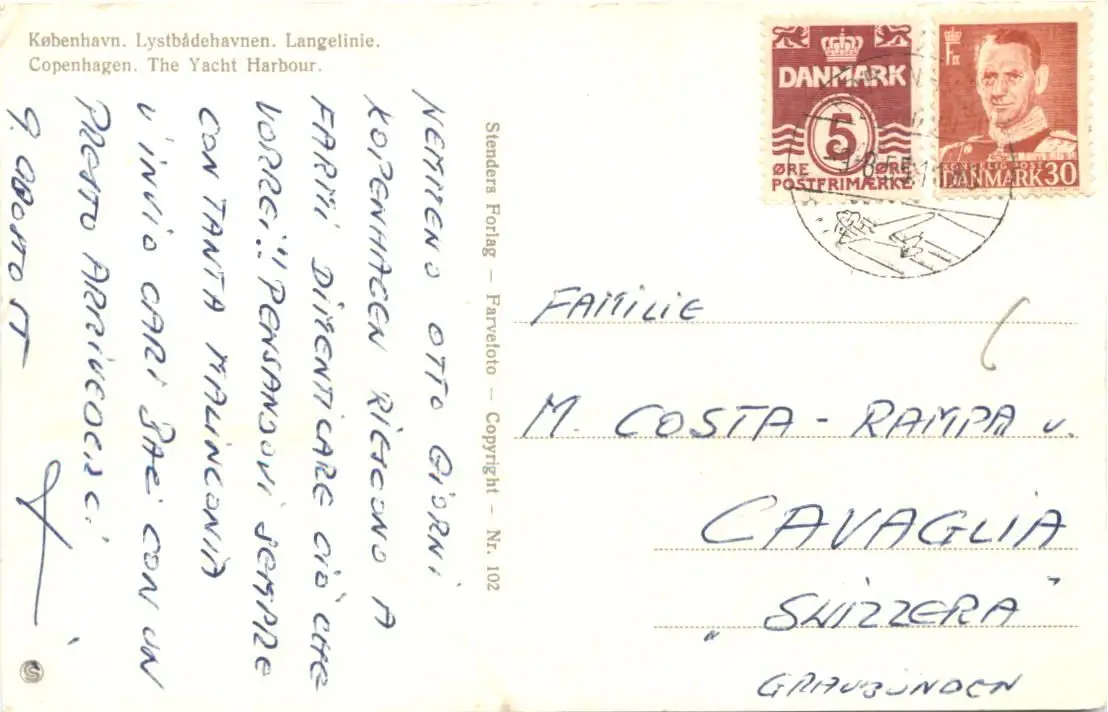 København. Lystbådehavnen. Langelinie.
Copenhagen. The Yacht Harbour.
NEMMENO OTTO GIORNI
KOPENHAGEN RIESCONO A
FARMI DIMENTICARE CIÒ CHE
VORREI!! PENSANDOVI SEMPRE
CON TANTA MALINCONIA
V'INVIO CARI BACI CON UN
PRESTO ARRIVEDERCI.
9. AGOSTO 55
Stenders Forlag — Farvefoto — Copyright — Nr. 102
DANMARK
5
ØRE ØRE
POSTFRIMÆRKE
F IX
KONGELIG POST
DANMARK 30
FAMILIE
M. COSTA - RAMPA
CAVAGLIA
"SWIZZERA"
GRAUBÜNDEN